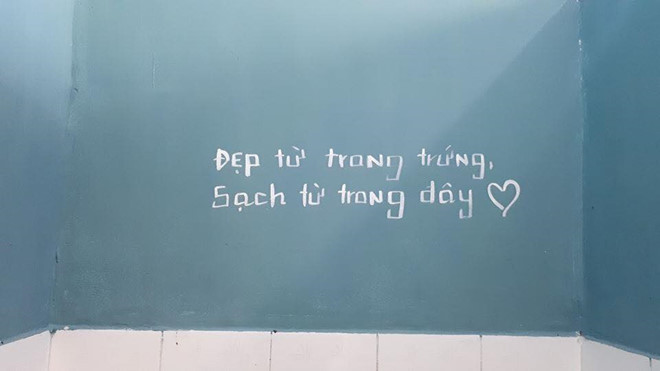 Đẹp từ trong trứng,
Sạch từ trong dây ♡